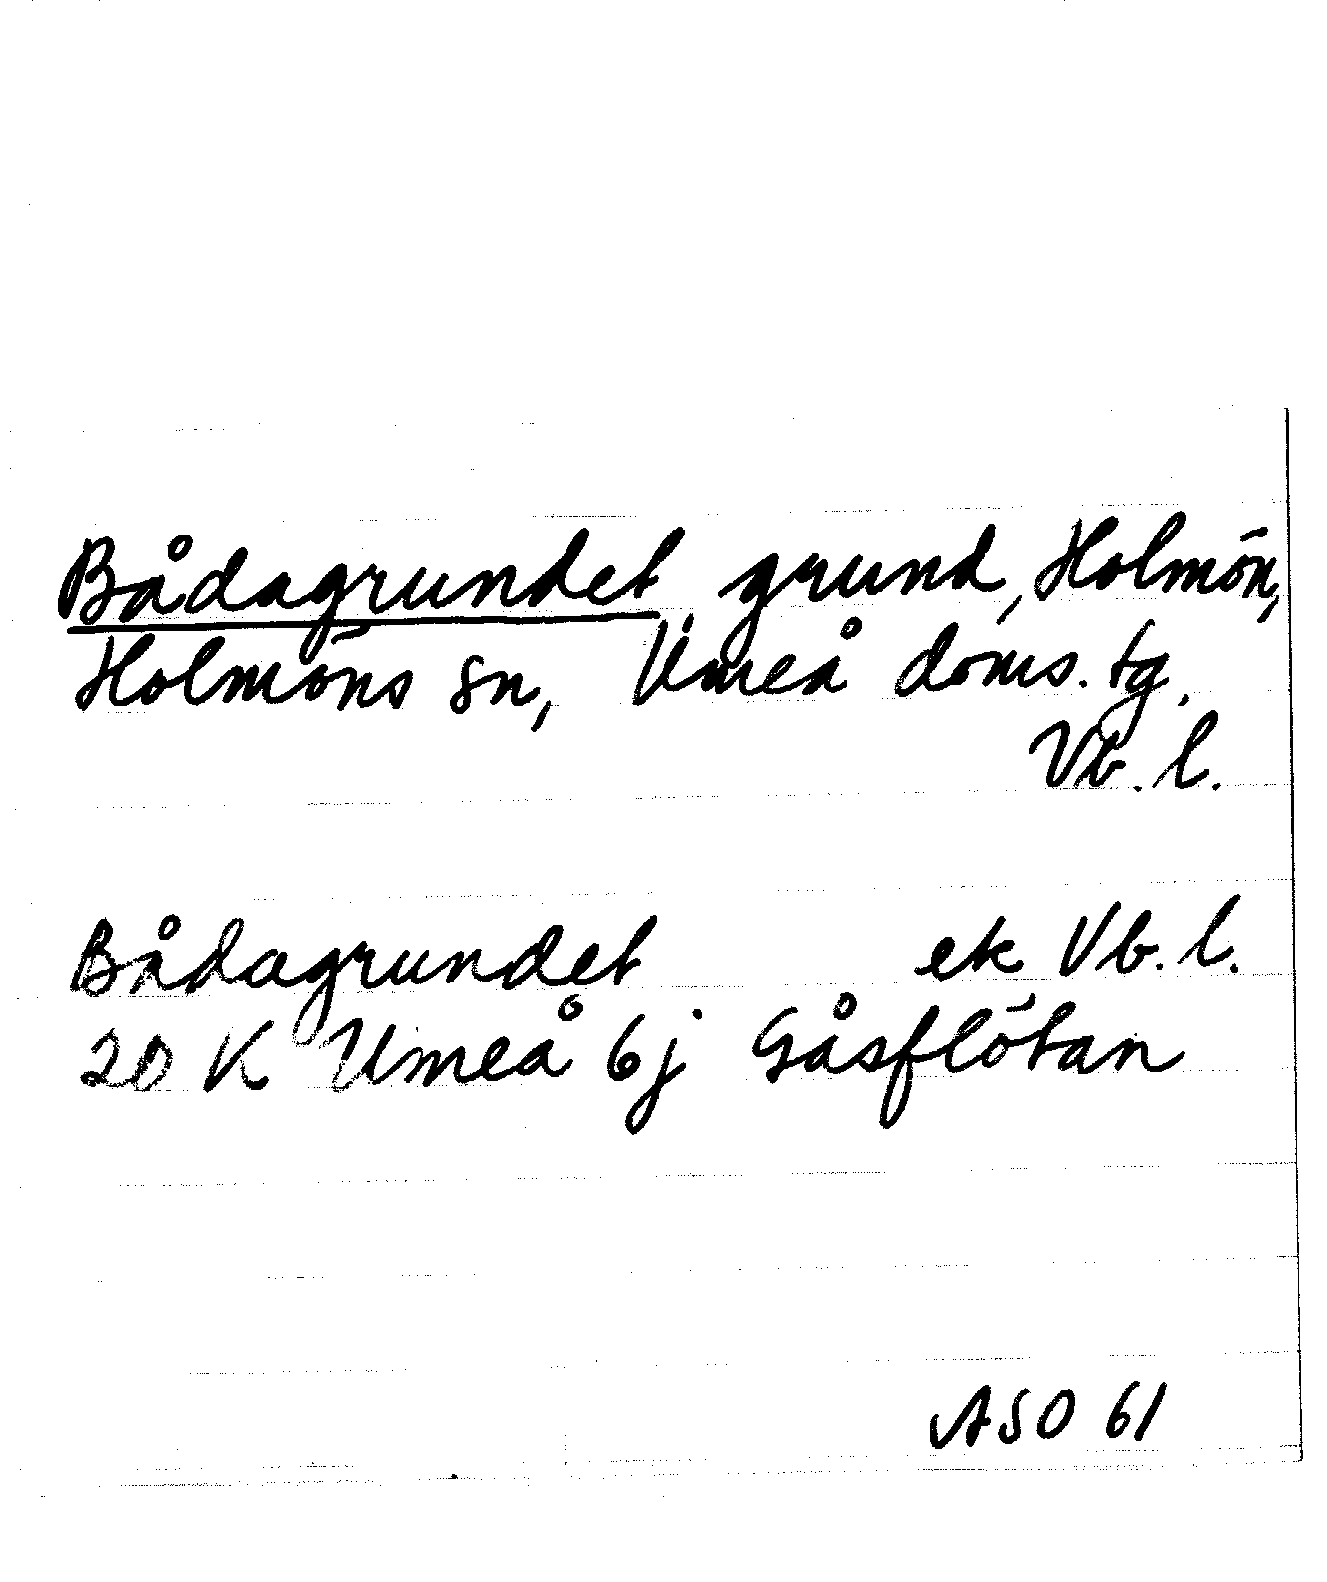 Bådagrundet, grund, Holmön,
Holmöns sn, Umeå doms. tg.
Vb. l.
Bådagrundet ek Vb. l.
20 K Umeå 6j Gåsflötan
ASO 61